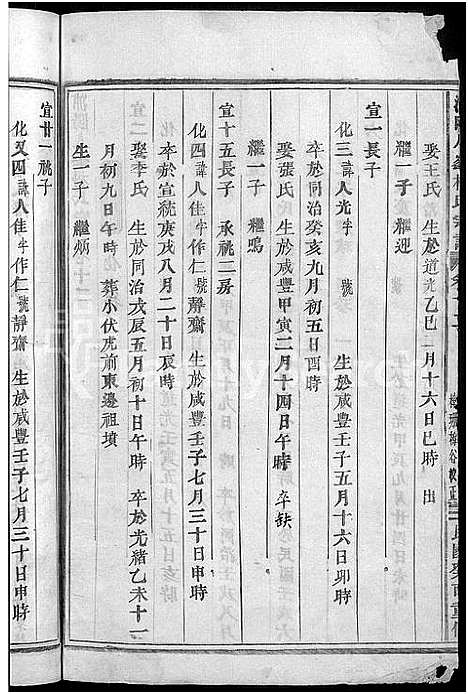 娶王氏　生於道光乙巳　月十六日巳時　出
繼一子　繼迎
宣一長子
化三　諱人光　字　號　生於咸豐壬子五月十六日卯時
卒於同治癸亥九月初五日酉時
娶張氏　生於咸豐甲寅二月十四日午時　卒缺
繼一子　繼鳴
宣十五長子　承祧二房
化四　諱人佳　字作仁　號靜齋　生於咸豐壬子七月三十日申時
卒於宣統庚戌八月二十日辰時
宣二　娶李氏　生於同治戊辰五月初十日午時　卒於光緒乙未十一
月初九日午時　葬小伏虎前東邊祖墳
生一子　繼炳
宣廿一祧子
化又四　諱人佳　字作仁　號靜齋　生於咸豐壬子七月三十日申時